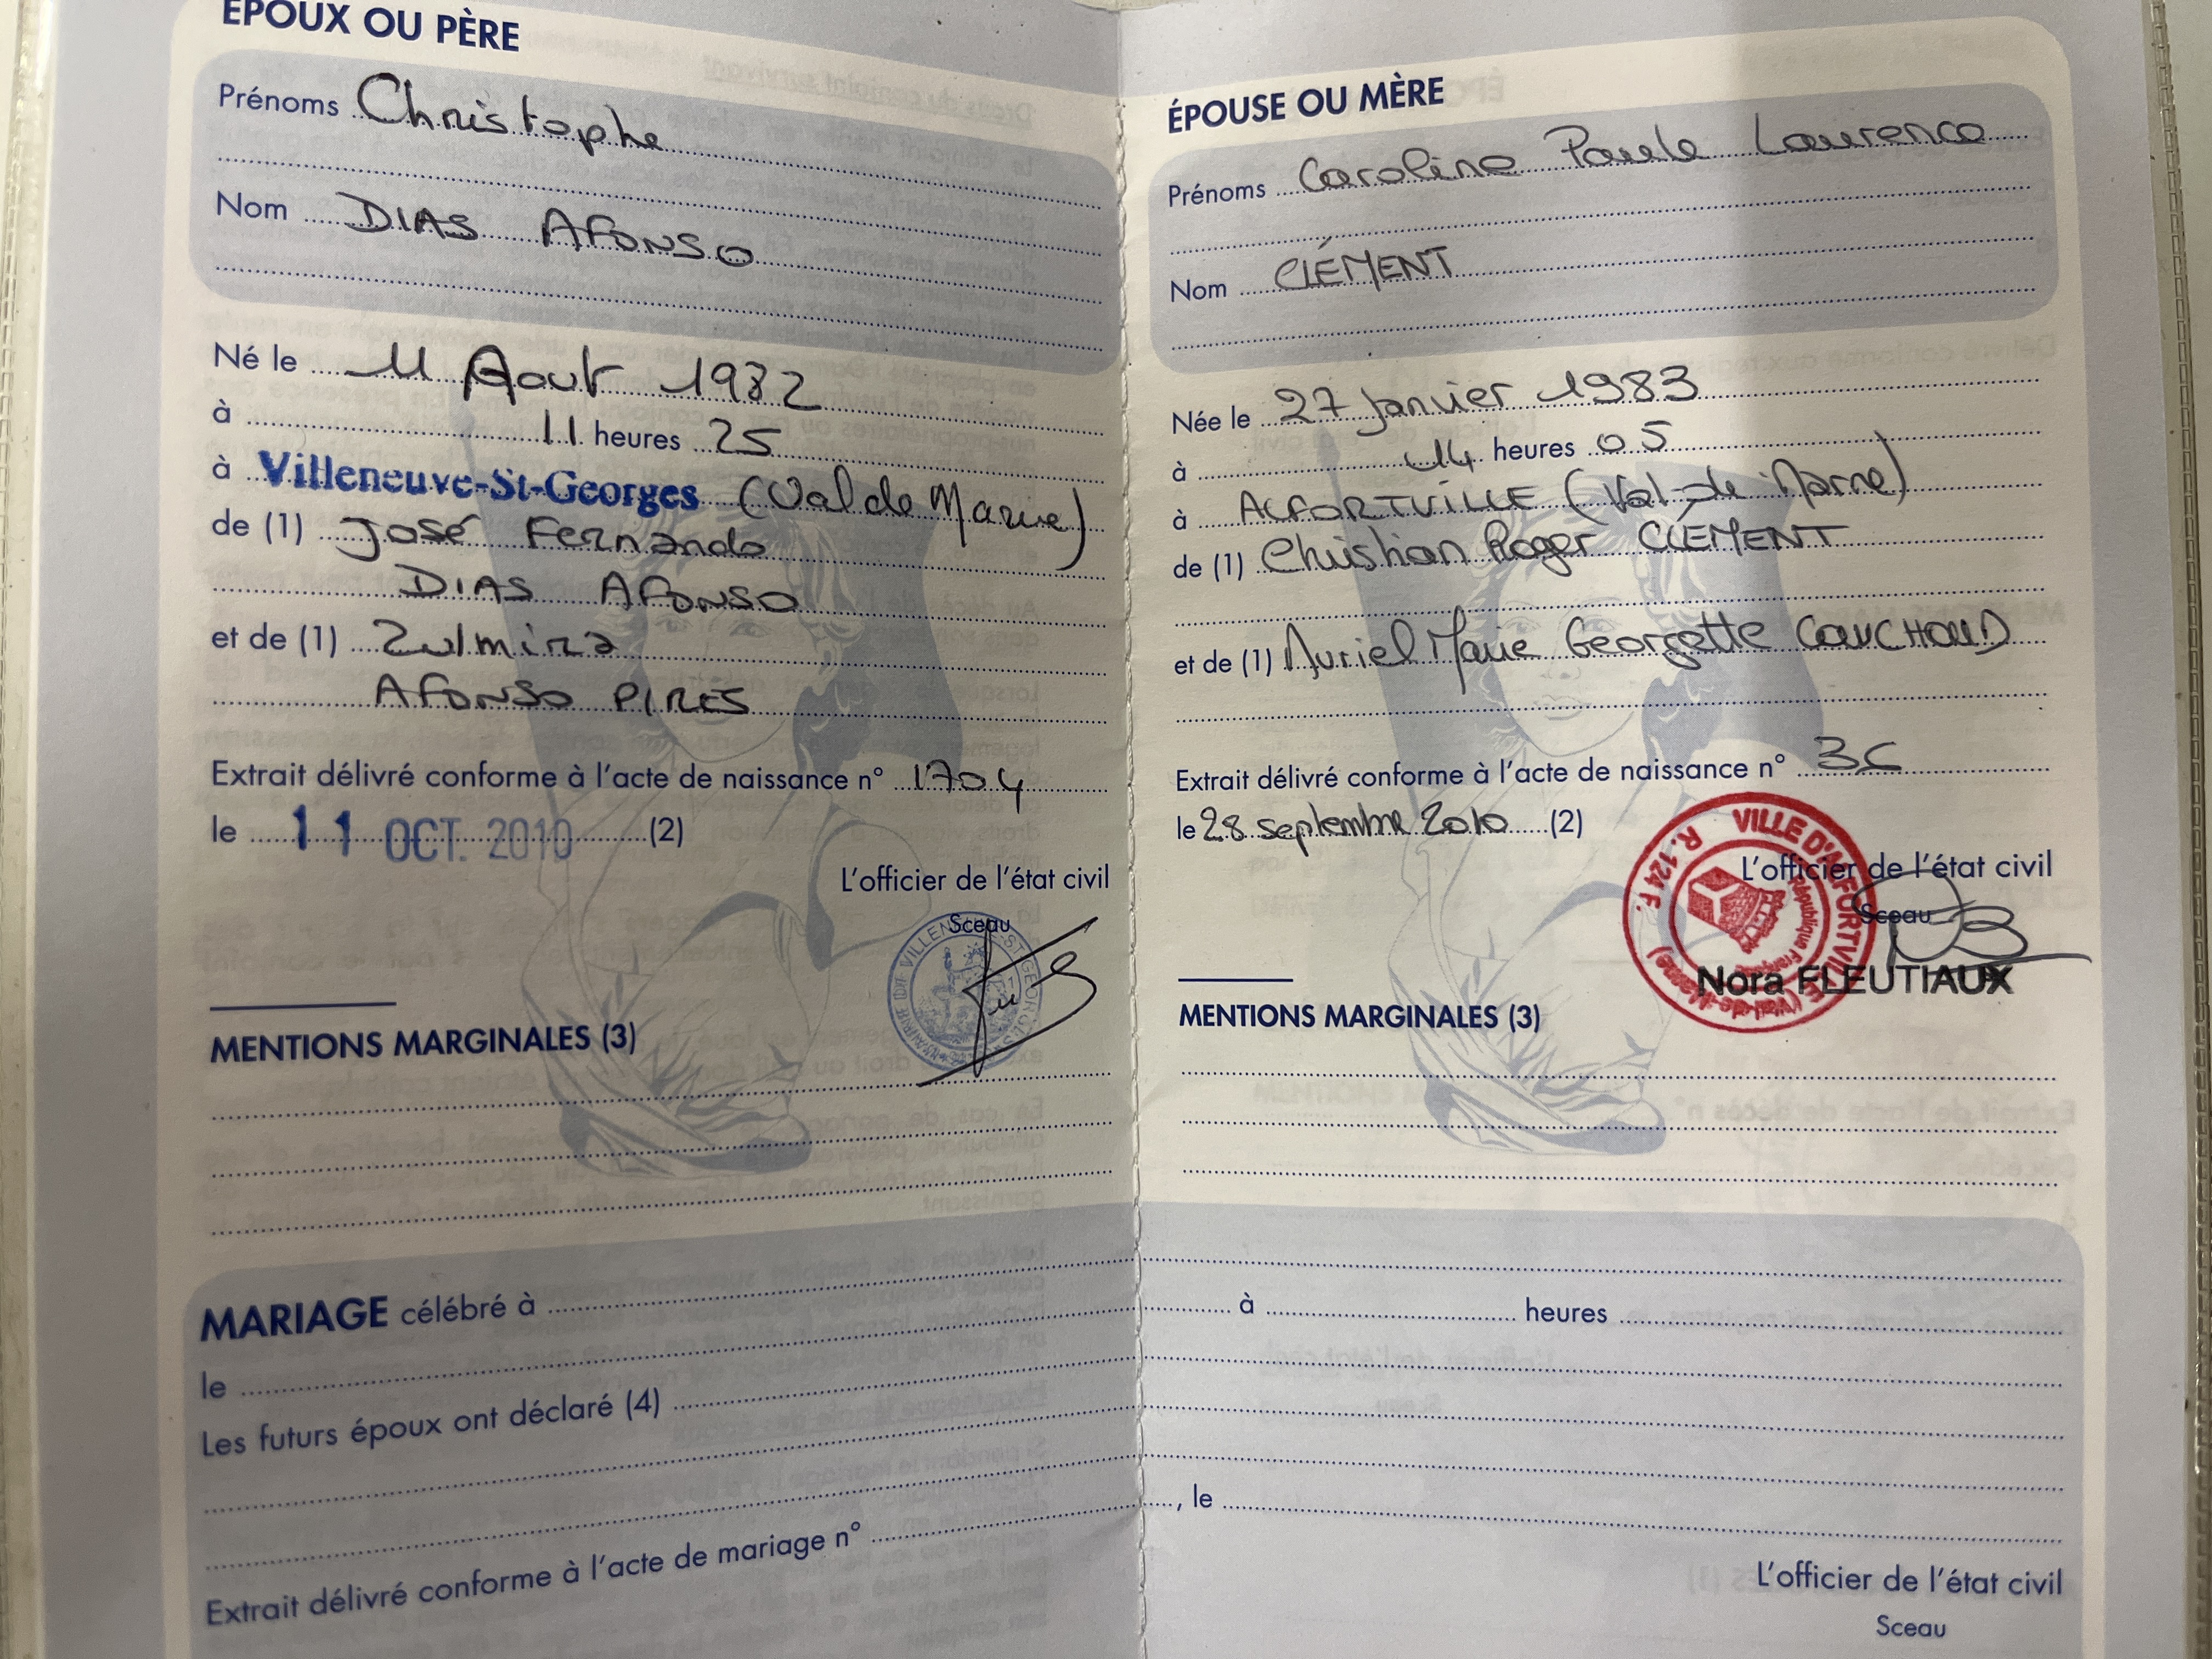 ÉPOUX OU PÈRE
Prénoms Christophe
Nom DIAS AFONSO
Né le 11 Aout 1982
à 11 heures 25
à Villeneuve-St-Georges (Val de Marne)
de (1) José Fernando
DIAS AFONSO
et de (1) Zulmira
AFONSO PIRES
Extrait délivré conforme à l'acte de naissance n° 1704
le 11 OCT. 2010 (2)
L'officier de l'état civil
Sceau
MENTIONS MARGINALES (3)
ÉPOUSE OU MÈRE
Prénoms Caroline Paule Laurence
Nom CLÉMENT
Née le 27 Janvier 1983
à 14 heures 05
à ALFORTVILLE (Val-de-Marne)
de (1) Christian Roger CLÉMENT
et de (1) Muriel Marie Georgette COUCHOUD
Extrait délivré conforme à l'acte de naissance n°
le 28 septembre 2010 (2)
L'officier de l'état civil
Sceau
VILLE D'ALFORTVILLE (Val-de-Marne)
R. 124 F.
République Française
Nora FLEUTIAUX
MENTIONS MARGINALES (3)
MARIAGE célébré à à heures
le
Les futurs époux ont déclaré (4)
Extrait délivré conforme à l'acte de mariage n° , le
L'officier de l'état civil
Sceau